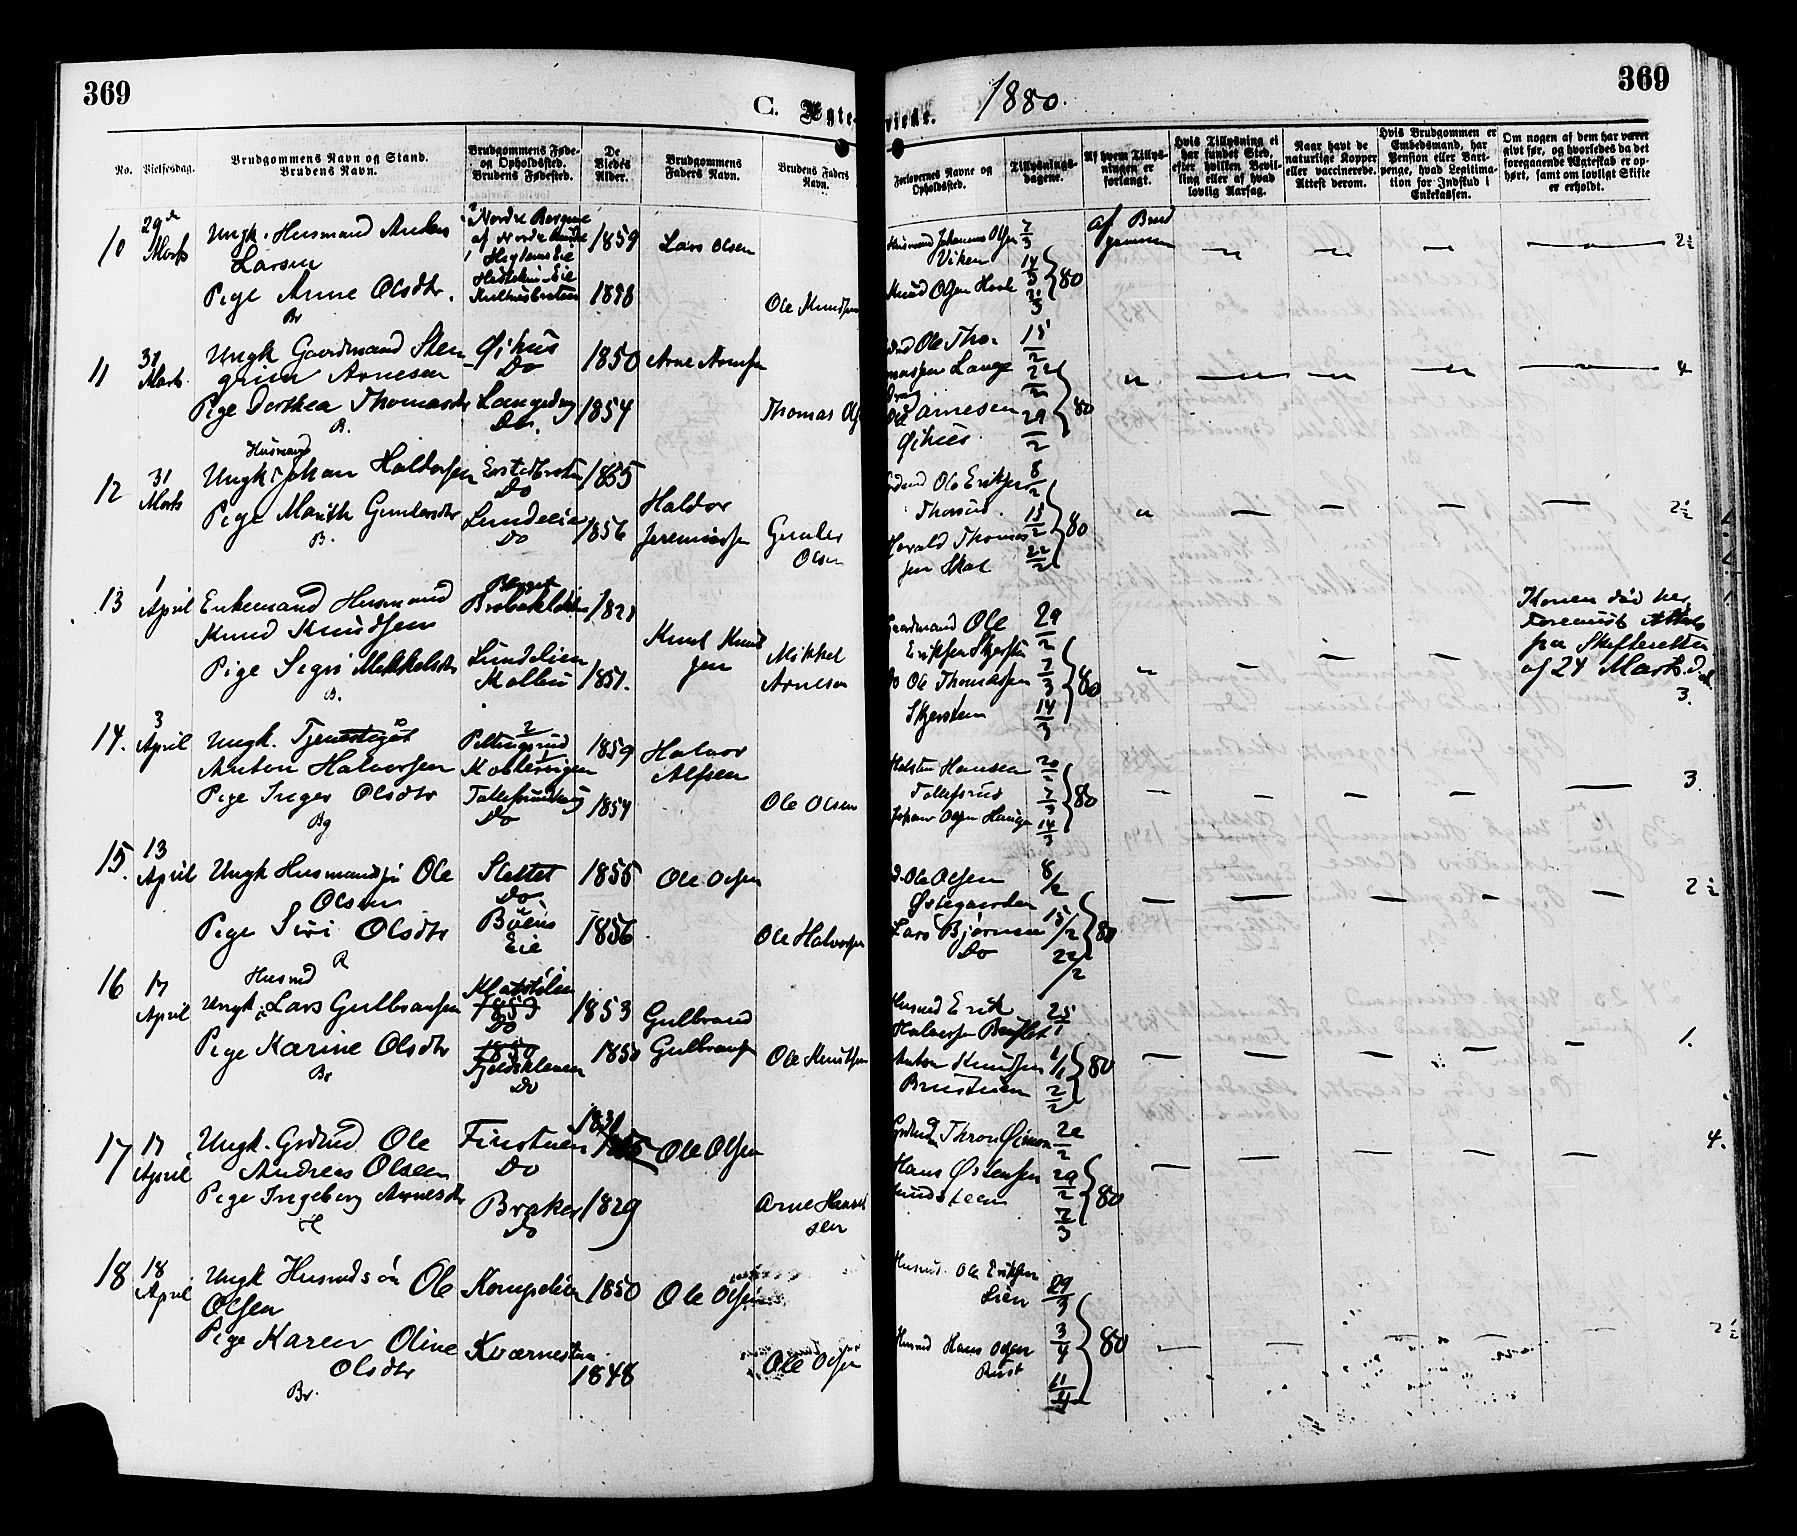 369
C. Ægte-
viede.
1880.
369
No.
Vielsesdag.
Brudgommens Navn og Stand.
Brudens Navn.
Brudgommens Føde-
og Opholdssted.
Brudens Fødested.
De
Viedes
Alder.
Brudgommens
Faders Navn.
Brudens Faders
Navn.
Forlovernes Navne og
Opholdssted.
Tillysnings-
dagene.
Af hvem Tillys-
ningen er
forlangt.
Hvis Tillysning ei
har fundet Sted,
efter hvilken Bevil-
ling eller af hvad
lovlig Aarsag.
Naar havt de
naturlige Kopper
eller vaccinerede.
Attest derom.
Hvis Brudgommen er
Embedsmand, har
Pension eller Vart-
penge, hvad Legitima-
tion for Indskud i
Enkekassen.
Om nogen af dem har været
givt før, og hvorledes da det
foregaaende Ægteskab er op-
hørt, samt om lovligt Skifte
er erholdt.
10
29de
Marts
Ungk. Husmand Anders
Larsen
Pige Anne Olsdtr.
Br
1859
Lars Olsen
Ole Knudsen
Husmand Johannes Olsen
Viken
Knud Olsen
7/3
14/3
21/3
80
af Brud
gommen
2½
11
31
Marts
Ungk Gaardmand Sten
grim Arnesen
Pige Dorthea Thomasdtr
B.
Øihus
Do
Langedrag
Do.
1850
1854
Arne Arnesen
Thomas Ols
Ole Tho-
massen Lange
drag
Ole Arnesen
Øihus
15/2
22/2
29/2
80
4
12
31
Marts
Husmand
Ungk Johan Haldorsen
Pige Marith Gunlersdtr
B.
Do
Lundelien
Do
1855
1856
Haldor
Jeremiassen
Gunler
Olsen
Ole Eriksen
Thorsrud.
Harald Thomas
sen Skal
8/2
15/2
22/2
80
2½
13
1
April
Enkemand Husmand
Knud Knudsen
Pige Segri Mekkelsdtr
B.
Lundelien
Kolbu
1851.
Knud Knud
sen
Mikkel
Arnesen
Gaardmand Ole
Eriksen Skjerstein
Do Ole Thomassen
Skjerstein
29/2
7/3
14/3
80
Konen død her
pa Skifteretten
af 24 Marts d.A.
3.
14.
3
April
Ungk. Tjenestegut
Anton Halvorsen
Pige Inger Olsdtr
Bg
Do
1859
1854
Halvor
Alfsen
Ole Olsen
Halsten Hansen
Tollefsrud
Johan Olsen Hauge
7/3
14/3
80
3.
15.
13
April
Ungk Husmandssøn Ole
Olsen
Pige Siri Olsdtr
R
Slettet
Do
Bøens
Eie
1855
1856
Ole Olsen
Ole Halvorsen
Ole Olsen
Østegaarden
Lars Bjørnsen
Do
8/2
15/2
22/2
80
2½
16
17
April
Husmd
Ungk. Lars Gulbransen
Pige Karine Olsdtr
Br
1853
Do
1850
Do
1853
1850
Gulbrand
Gulbransen
Ole Knutsen
Husmd Erik
Halvorsen
Anton Knudsen
Brustuen
25/1
1/1
2/2
80
1.
17
17
April
Ungk. Grdmd Ole
Andreas Olsen
Pige Ingeborg Arnesdtr
Finstuen
Do
Braker
Do
1831
1829
Ole Olsen
Arne Hansen
Grdmd Thron
Hans Østensen
22/2
29/2
7/3
80
4.
18
18
April
Ungk Husmdsøn Ole
Olsen
Pige Karen Oline
Olsdtr
Br.
Kompelien
Kværnestuen
1850
1848
Ole Olsen
Ole Olsen
Husmd. Ole Eriksen
Lien
Husmd Hans Olsen
Rust
29/3
3/4
11/4
80
2½